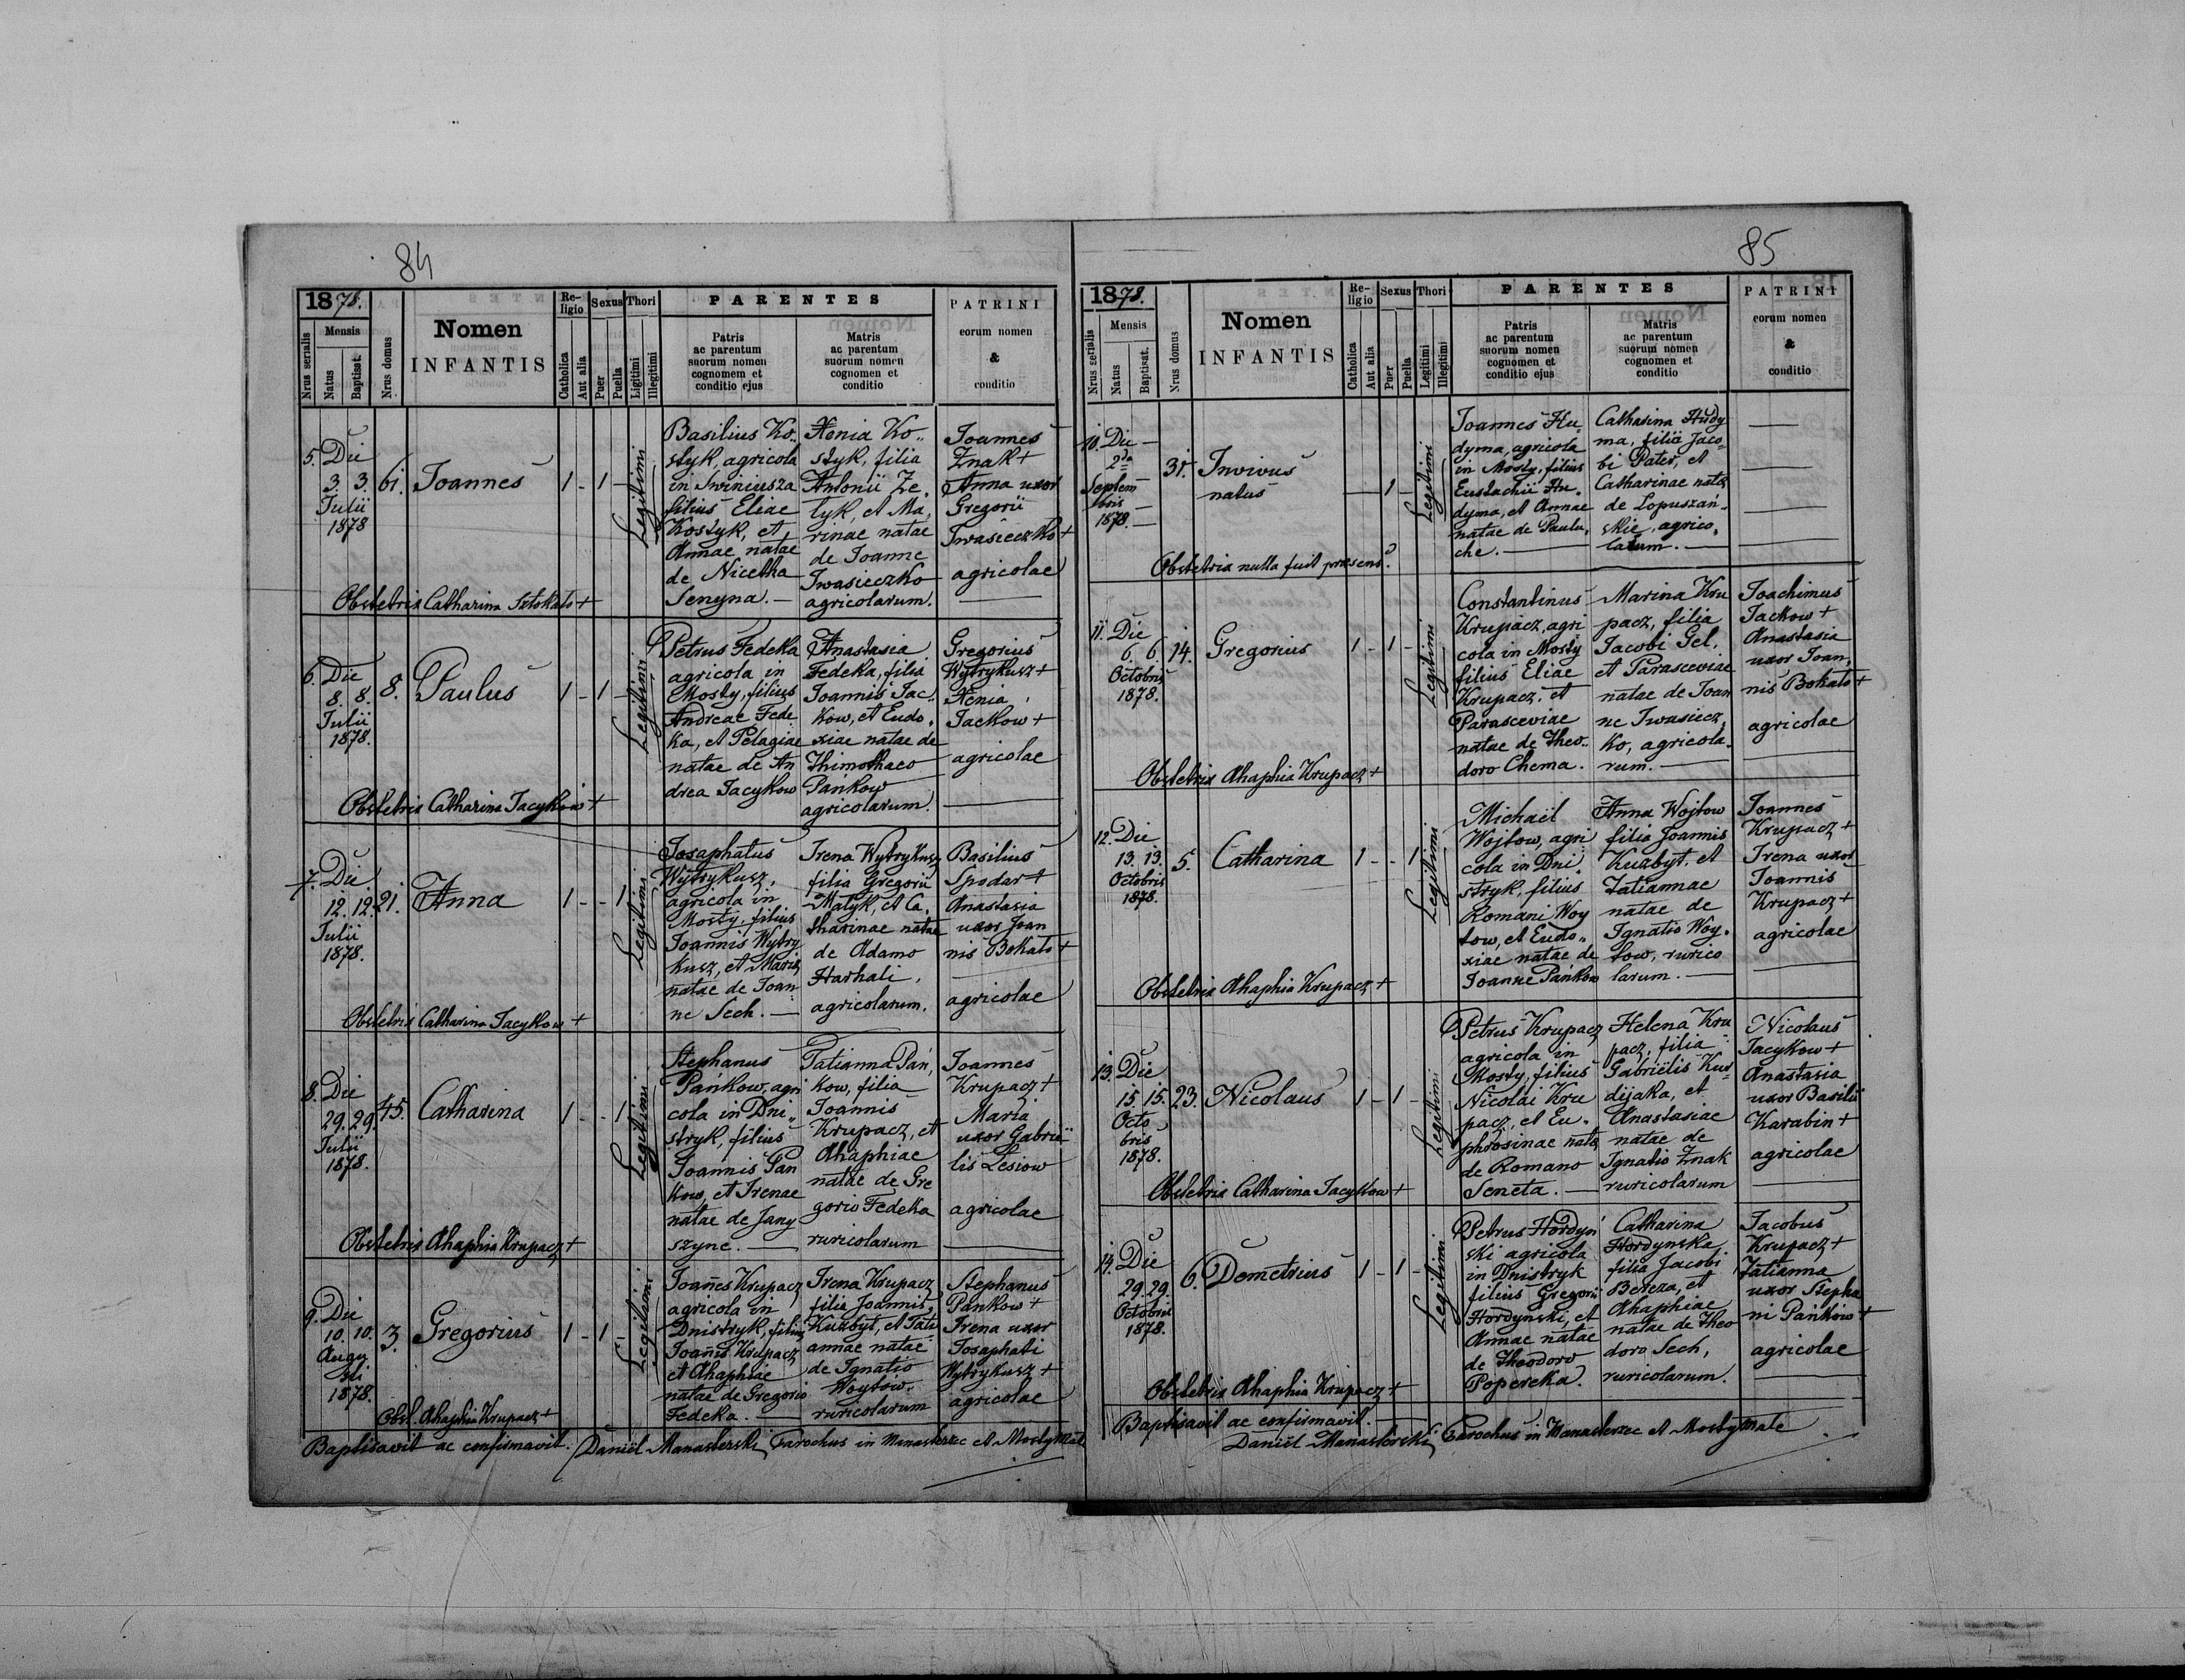 84
1878.
Nrus serialis
Mensis
Natus
Baptisat.
Nrus domus
Nomen
INFANTIS
Re-
ligio
Catholica
Aut alia
Sexus
Puer
Puella
Thori
Legitimi
Illegitimi
PARENTES
Patris
ac parentum
suorum nomen
cognomem et
conditio ejus
Matris
ac parentum
suorum nomen
cognomen et
conditio
PATRINI
eorum nomen
&
conditio
5. Die
3 3.
Julii
1878
61.
Joannes
1 - 1 -
Legitimi
Basilius Ko-
styk, agricola
in Swiniusza
filius Eliae
Kostyk, et
Annae natae
de Nicetha
Senyna. —
Xenia Ko-
styk, filia
Antonii Ze-
lyk, et Ma-
rinae natae
de Joanne
Iwasieczko
agricolarum.
Joannes
Znak +
Anna uxor
Gregorii
Iwasieczko +
agricolae
Obstetrix Catharina Sztokalo +
6. Die
8. 8.
Julii
1878.
8.
Paulus
1 - 1 -
Legitimi
Petrus Fedeka
agricola in
Mosty, filius
Andreae Fede
ka, et Pelagiae
natae de An
drea Jacykow
Anastasia
Fedeka, filia
Joannis Jac-
kow, et Eudo-
xiae natae de
Thimothaeo
Pańkow
agricolarum.
Gregorius
Wytrykusz +
Xenia
Jackow +
agricolae
Obstetrix Catharina Jacykow +
7. Die
12. 12.
Julii
1878.
21.
Anna
1 - - 1
Legitimi
Josaphatus
Wytrykusz,
agricola in
Mosty, filius
Joannis Wytry
kusz, et Mariae
natae de Joan
ne Sech. —
Irena Wytrykusz
filia Gregorii
Matyk, et Ca-
tharinae natae
de Adamo
Harhali,
agricolarum.
Basilius
Spodar +
Anastasia
uxor Joan
nis Bokalo +
agricolae
Obstetrix Catharina Jacykow +
8. Die
29. 29
Julii
1878.
45.
Catharina
1 - - 1
Legitimi
Stephanus
Pańkow, agri
cola in Dni-
stryk, filius
Joannis Pań
kow, et Irenae
natae de Jany
szyne. —
Tatianna Pań,
kow, filia
Joannis
Krupacz, et
Ahaphiae
natae de Gre
gorio Fedeka
ruricolarum
Joannes
Krupacz +
Maria
uxor Gabrie
lis Lesiow
agricolae
Obstetrix Ahaphia Krupacz +
9. Die
10. 10.
Augu
sti
1878.
3.
Gregorius
1 - 1 -
Legitimi
Joañes Krupacz
agricola in
Dnistryk, filius
Joañis Krupacz
et Ahaphiae
natae de Gregorio
Fedeka. —
Irena Krupacz
filia Joannis
Kuzbyt, et Tati
annae natae
de Ignatio
Woytow.
ruricolarum
Stephanus
Pankow +
Irena uxor
Josaphati
Wytrykusz +
agricolae
Obst. Ahaphia Krupacz +
Baptisavit ac confirmavit. Daniel Manasterski, Parochus in Manasterzec et Mosty Małe
85
1878.
Nrus serialis
Mensis
Natus
Baptisat.
Nrus domus
Nomen
INFANTIS
Re-
ligio
Catholica
Aut alia
Sexus
Puer
Puella
Thori
Legitimi
Illegitimi
PARENTES
Patris
ac parentum
suorum nomen
cognomen et
conditio ejus
Matris
ac parentum
suorum nomen
cognomen et
conditio
PATRINI
eorum nomen
&
conditio
10. Die —
2da
Septem
bris —
1878. —
31.
Invivus
natus
— 1 -
Legitimi
Joannes Hu-
dyma, agricola
in Mosty, filius
Eustachii Hu-
dyma, et Annae
natae de Paulu-
che. —
Catharina Hudy
ma, filia Jaco-
bi Pater, et
Catharinae natae
de Lopuszań-
skie, agrico-
larum. —
Obstetrix nulla fuit praesens.
11. Die
6. 6.
Octobris
1878.
14.
Gregorius
1 - 1 -
Legitimi
Constantinus
Krupacz, agri
cola in Mosty
filius Eliae
Krupacz, et
Parasceviae
natae de Theo-
doro Chema.
Marina Kru
pacz, filia
Jacobi Gel,
et Parasceviae
natae de Joan
ne Iwasiecz-
ko, agricola-
rum. —
Joachimus
Jackow +
Anastasia
uxor Joan,
nis Bokalo +
agricolae
Obstetrix Ahaphia Krupacz +
12. Die
13. 13.
Octobris
1878.
5.
Catharina
1 - - 1
Legitimi
Michaël
Wojtow, agri
cola in Dni-
stryk, filius
Romani Woy
tow, et Eudo-
xiae natae de
Joanne Pańkow
Anna Wojtow
filia Joannis
Kuzbyt, et
Tatiannae
natae de
Ignatio Woy-
tow, rurico
larum. —
Joannes
Krupacz +
Irena uxor
Joannis
Krupacz +
agricolae
Obstetrix Ahaphia Krupacz +
13. Die
15 15.
Octo
bris
1878.
23.
Nicolaus
1 - 1 -
Legitimi
Petrus Krupacz
agricola in
Mosty, filius
Nicolai Kru
pacz, et Eu-
phrosinae natae
de Romano
Seneta. —
Helena Kru
pacz, filia
Gabriëlis Kur-
dijaka, et
Anastasiae
natae de
Ignatio Znak
ruricolarum
Nicolaus
Jacykow +
Anastasia
uxor Basilii
Karabin +
agricolae
Obstetrix Catharina Jacykow +
14. Die
29. 29.
Octobris
1878.
6.
Demetrius
1 - 1 -
Legitimi
Petrus Hordyń
ski agricola
in Dnistryk
filius Gregorii
Hordynski, et
Annae natae
de Theodoro
Popereka.
Catharina
Hordynska,
filia Jacobi
Bereza, et
Ahaphiae
natae de Theo
doro Sech,
ruricolarum.
Jacobus
Krupacz +
Tatianna
uxor Stepha
ni Pańkow +
agricolae
Obstetrix Ahaphia Krupacz +
Baptisavit ac confirmavit.
Daniël Manasterski, Parochus in Manasterzec et Mosty Małe